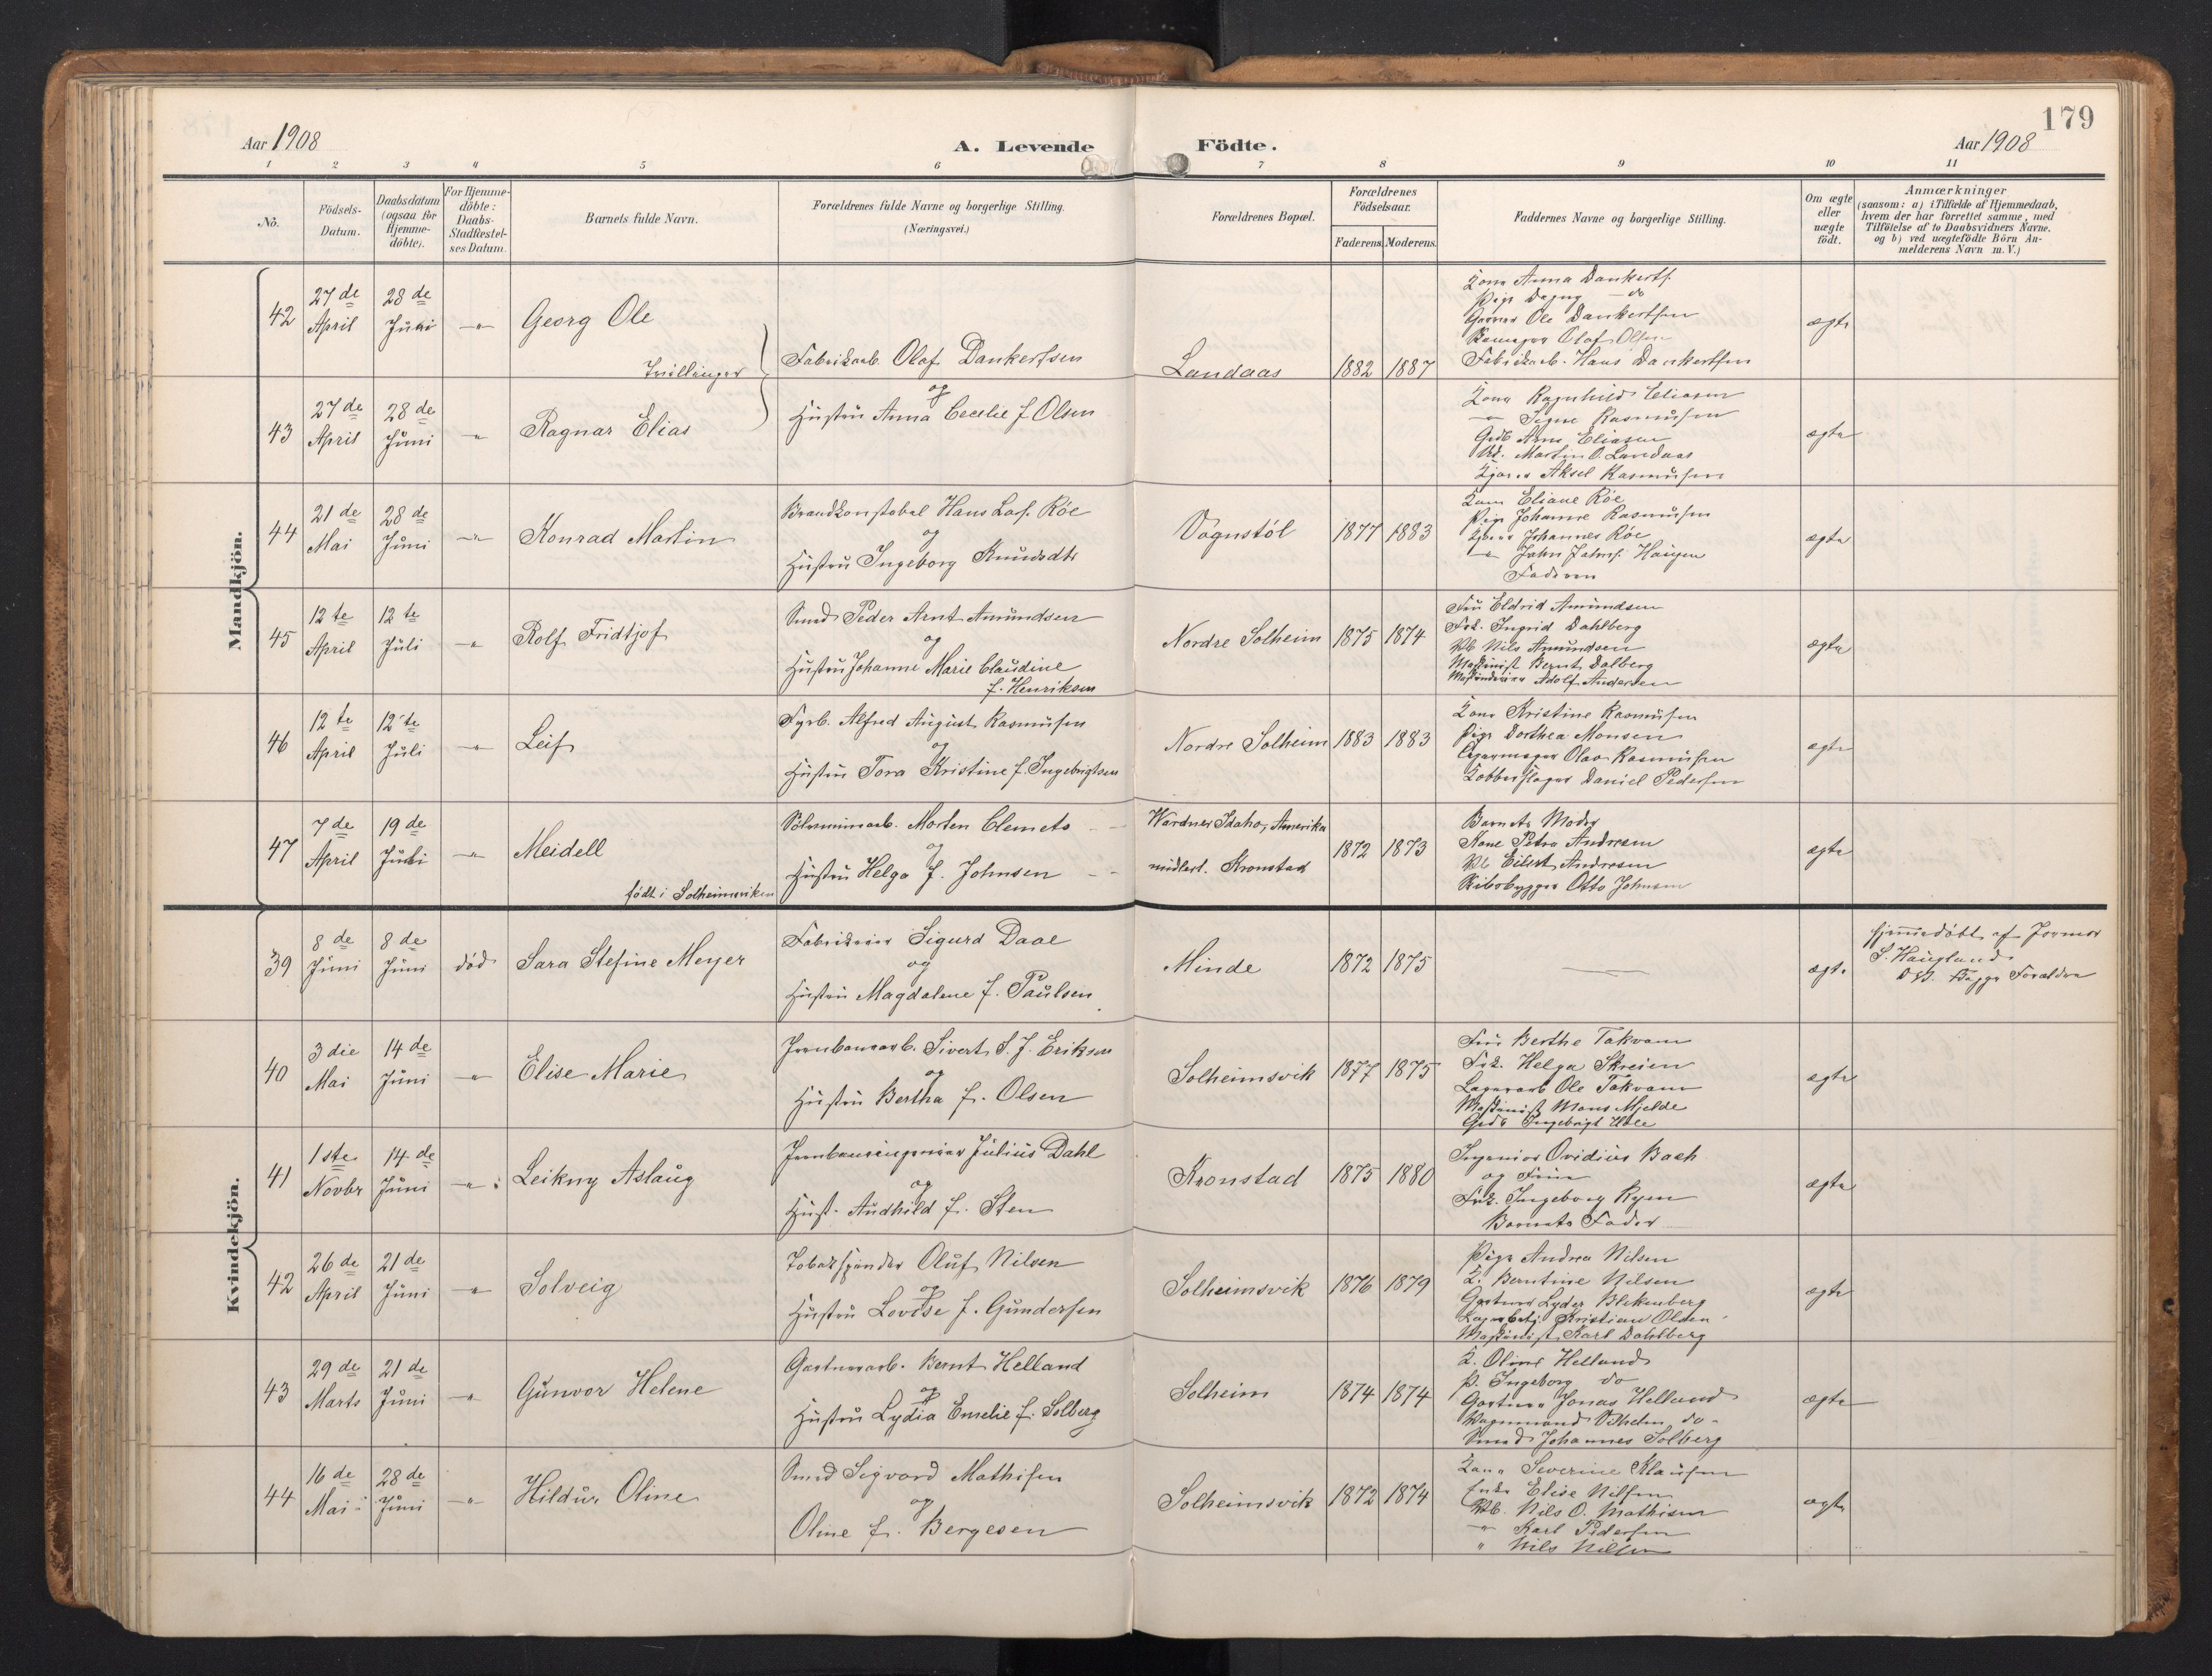 179
Aar 1908
A. Levende Födte.
Aar 1908
1 2 3 4 5 6 7 8 9 10 11
No.
Födsels-Datum.
Daabsdatum (ogsaa för Hjemme-döbte).
For Hjemme-döbte: Daabs-Stadfæstel-ses Datum.
Barnets fulde Navn.
Forældrenes fulde Navne og borgerlige Stilling.
(Næringsvei.)
Forældrenes Bopæl.
Forældrenes Födselsaar.
Faderens. Moderens.
Faddernes Navne og borgerlige Stilling.
Om ægte eller uægte födt.
Anmærkninger
(saasom: a) i Tilfælde af Hjemmedaab,
hvem der har forrettet samme, med
Tilföielse af to Daabsvidners Navne.
og b) ved uægtefödte Börn An-
melderens Navn m. V.)
Mandkjön.
42 27de April 28de Juni -"- Georg Ole
Tvillinger
Fabrikarb. Olaf Dankertsen
og
Hustru Anna Cecilie f. Olsen
Landaas 1882 1887
Kone Anna Dankerts.
Pige Dagny do
Ole Dankertsen
Olaf Olsen
Fabrikarb. Hans Dankertsen
ægte
43 27de April 28de Juni " Ragnar Elias
Kone Ragnhild Eliasen
-"- Signe Rasmussen
Gdb Arne Eliasen
Martin O. Landaas
Aksel Rasmussen
ægte
44 21de Mai 28de Juni -"- Konrad Martin
Brandkonstabel Hans Las. Röe
og
Hustru Ingeborg Knudsdtr
Vognstöl 1877 1883
Kone Eliane Röe
Pige Johanne Rasmussen
Johannes Röe
-"- John Johns. Haugen
Faderen
ægte
45 12te April 12te Juli " Rolf Fridtjof
Smed Peder Arnt Amundsen
og
Hustru Johanne Marie Claudine
f. Henriksen
Nordre Solheim 1875 1874
Fru Eldrid Amundsen
Frk. Ingrid Dahlberg
Nils Amundsen
Maskinist Bernt Dalberg
Adolf Andersen
ægte
46 12te April 12te Juli -"- Leif
Fyrb. Alfred August Rasmussen
og
Hustru Tora Kristine f. Ingebrigtsen
Nordre Solheim 1883 1883
Kone Kristine Rasmussen
Pige Dorthea Monsen
Olav Rasmussen
Kobberslager Daniel Pedersen
ægte
47 7de April 19de Juli -"- Meidell
født i Solheimsviken
Sölvminearb. Morten Clemets
og
Hustru Helga f. Johnsen
Wardner Idaho, Amerika
midlert. Kronstad
1872 1873
Barnets Moder
Kone Petra Andresen
Eilert Andresen
Skibsbygger Otto Johnsen
ægte
Kvindekjön.
39 8de Juni 8de Juni död Sara Stefine Meyer
Fabrikeier Sigurd Daae
og
Hustru Magdalene f. Paulsen
Minde 1872 1875
ægte
hjemmedöbt af Jormor
S. Haugland
Begge Forældre
40 3die Mai 14de Juni " Elise Marie
Jernbanearb. Sivert S. J. Eriksen
og
Hustru Bertha f. Olsen
Solheimsvik 1877 1875
Fru Berthe Takvam
Frk. Helga Skreien
Lagerarb Ole Takvam
Maskinist Mons Mjelde
Gdb Ingebrigt
ægte
41 1ste Novbr 14de Juni -"- Leikny Aslaug
Jernbaneingeniør Julius Dahl
og
Hust. Audhild f. Sten
Kronstad 1875 1880
Ingeniør Ovidius Bach
og Frue
Frk. Ingeborg Ryen
Barnets Fader
ægte
42 26de April 21de Juni -"- Solveig
Tobakspinder Oluf Nilsen
og
Hustru Lovise f. Gundersen
Solheimsvik 1876 1879
Pige Andrea Nilsen
K. Berntine Nilsen
Gartner Lyder Blekenberg
Kristian Olsen
Maskinist Karl Dahlberg
ægte
43 29de Marts 21de Juni -"- Gunvor Helene
Gartnerarb. Bernt Helland
og
Hustru Lydia Emelie f. Solberg
Solheim 1874 1874
K. Oline Helland
P. Ingeborg do
Gartner Jonas Helland
Vognmand Vilhelm do
Smed Johannes Solberg
ægte
44 16de Mai 28de Juni -"- Hildur Oline
Smed Sigvard Mathisen
og
Oline f. Bergesen
Solheimsvik 1872 1874
Kone Severine Klausen
Enke Elise Nilsen
Nils O. Mathisen
" Karl Pedersen
" Nils Nilsen
ægte